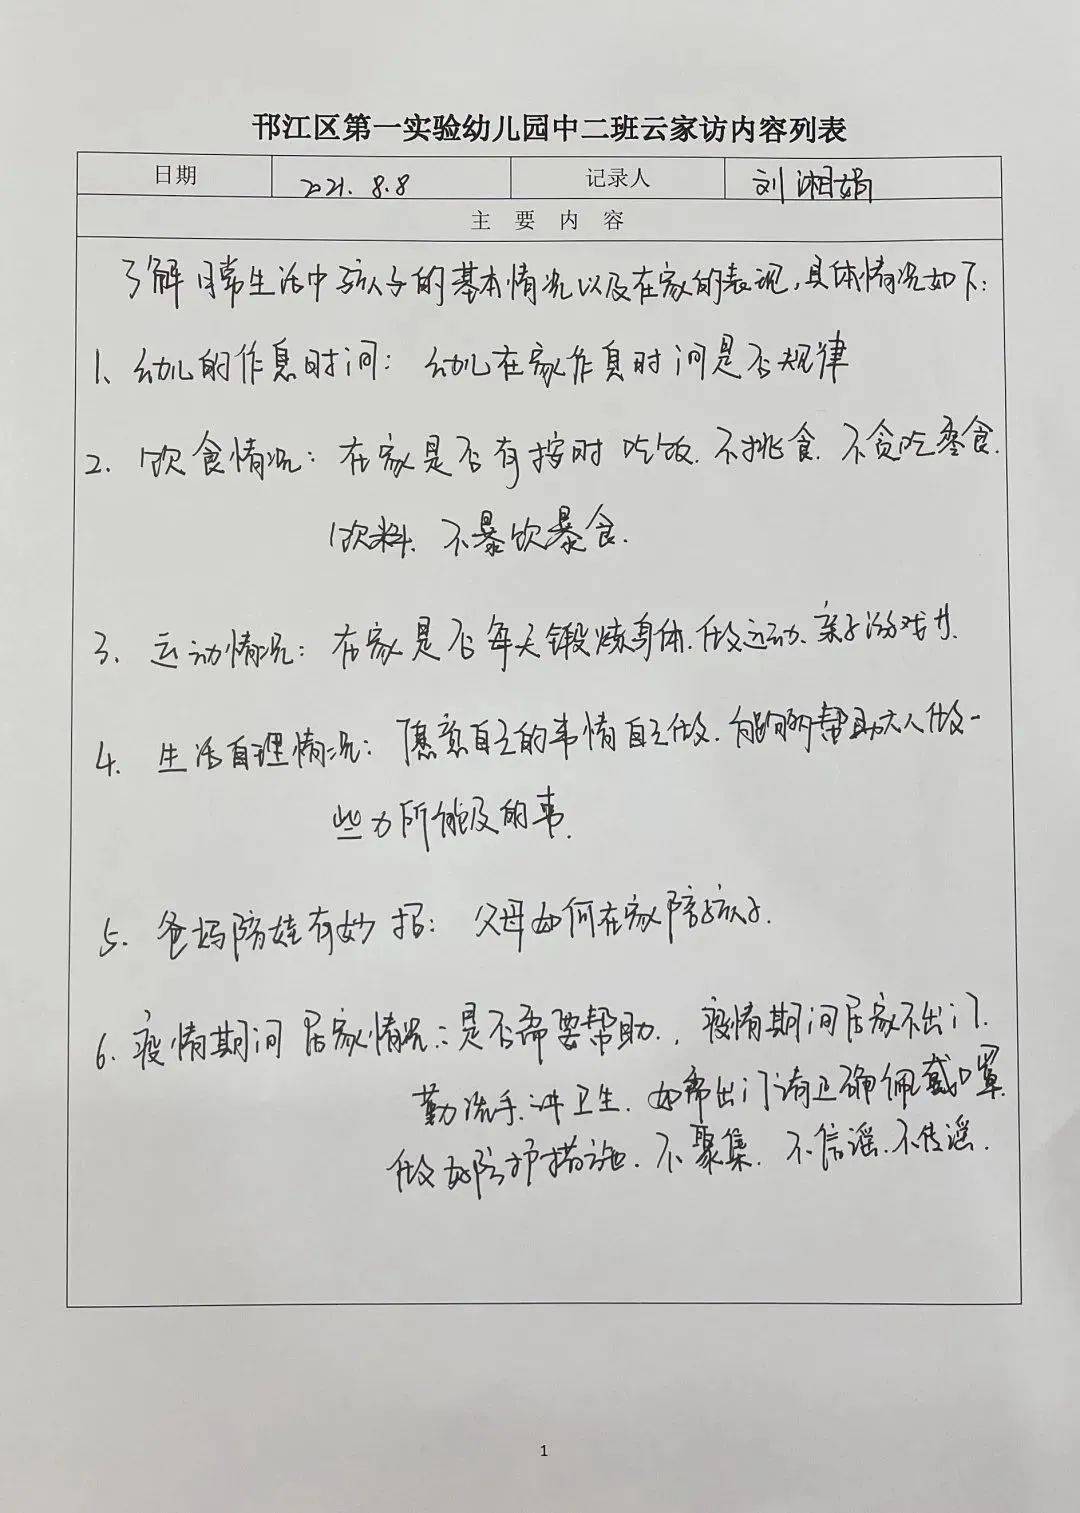 邗江区第一实验幼儿园中二班云家访内容列表
日期 2021.8.8 记录人 刘湘娟
主要内容
了解日常生活中孩子的基本情况以及在家的表现,具体情况如下:
1、幼儿的作息时间:幼儿在家作息时间是否规律
2、饮食情况:在家是否有按时吃饭、不挑食、不贪吃零食、
饮料、不暴饮暴食.
3、运动情况:在家是否每天锻炼身体、做运动、亲子游戏
4、生活自理情况:愿意自己的事情自己做、能够帮助大人做一
些力所能及的事.
5、爸妈陪娃有妙招:父母如何在家陪孩子.
6、疫情期间居家情况:是否需要帮助.,疫情期间居家不出门.
勤洗手.讲卫生.如需出门请正确佩戴口罩.
做好防护措施.不聚集.不信谣.不传谣.
1